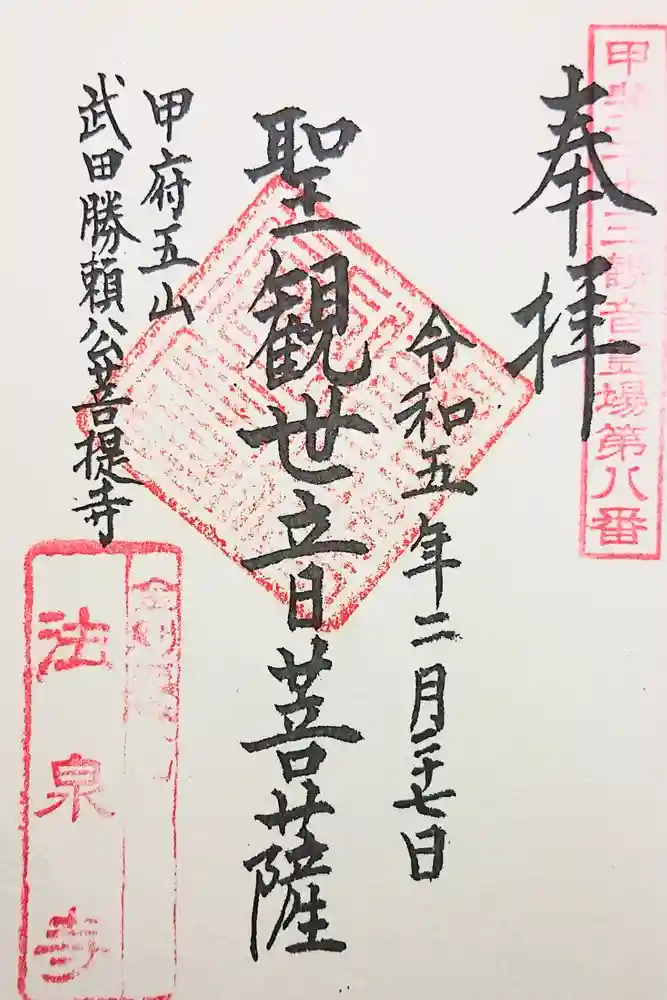 甲斐三十三観音霊場第八番
奉拝
令和五年二月二十七日
聖観世音菩薩
甲府五山
武田勝頼公菩提寺
法泉寺